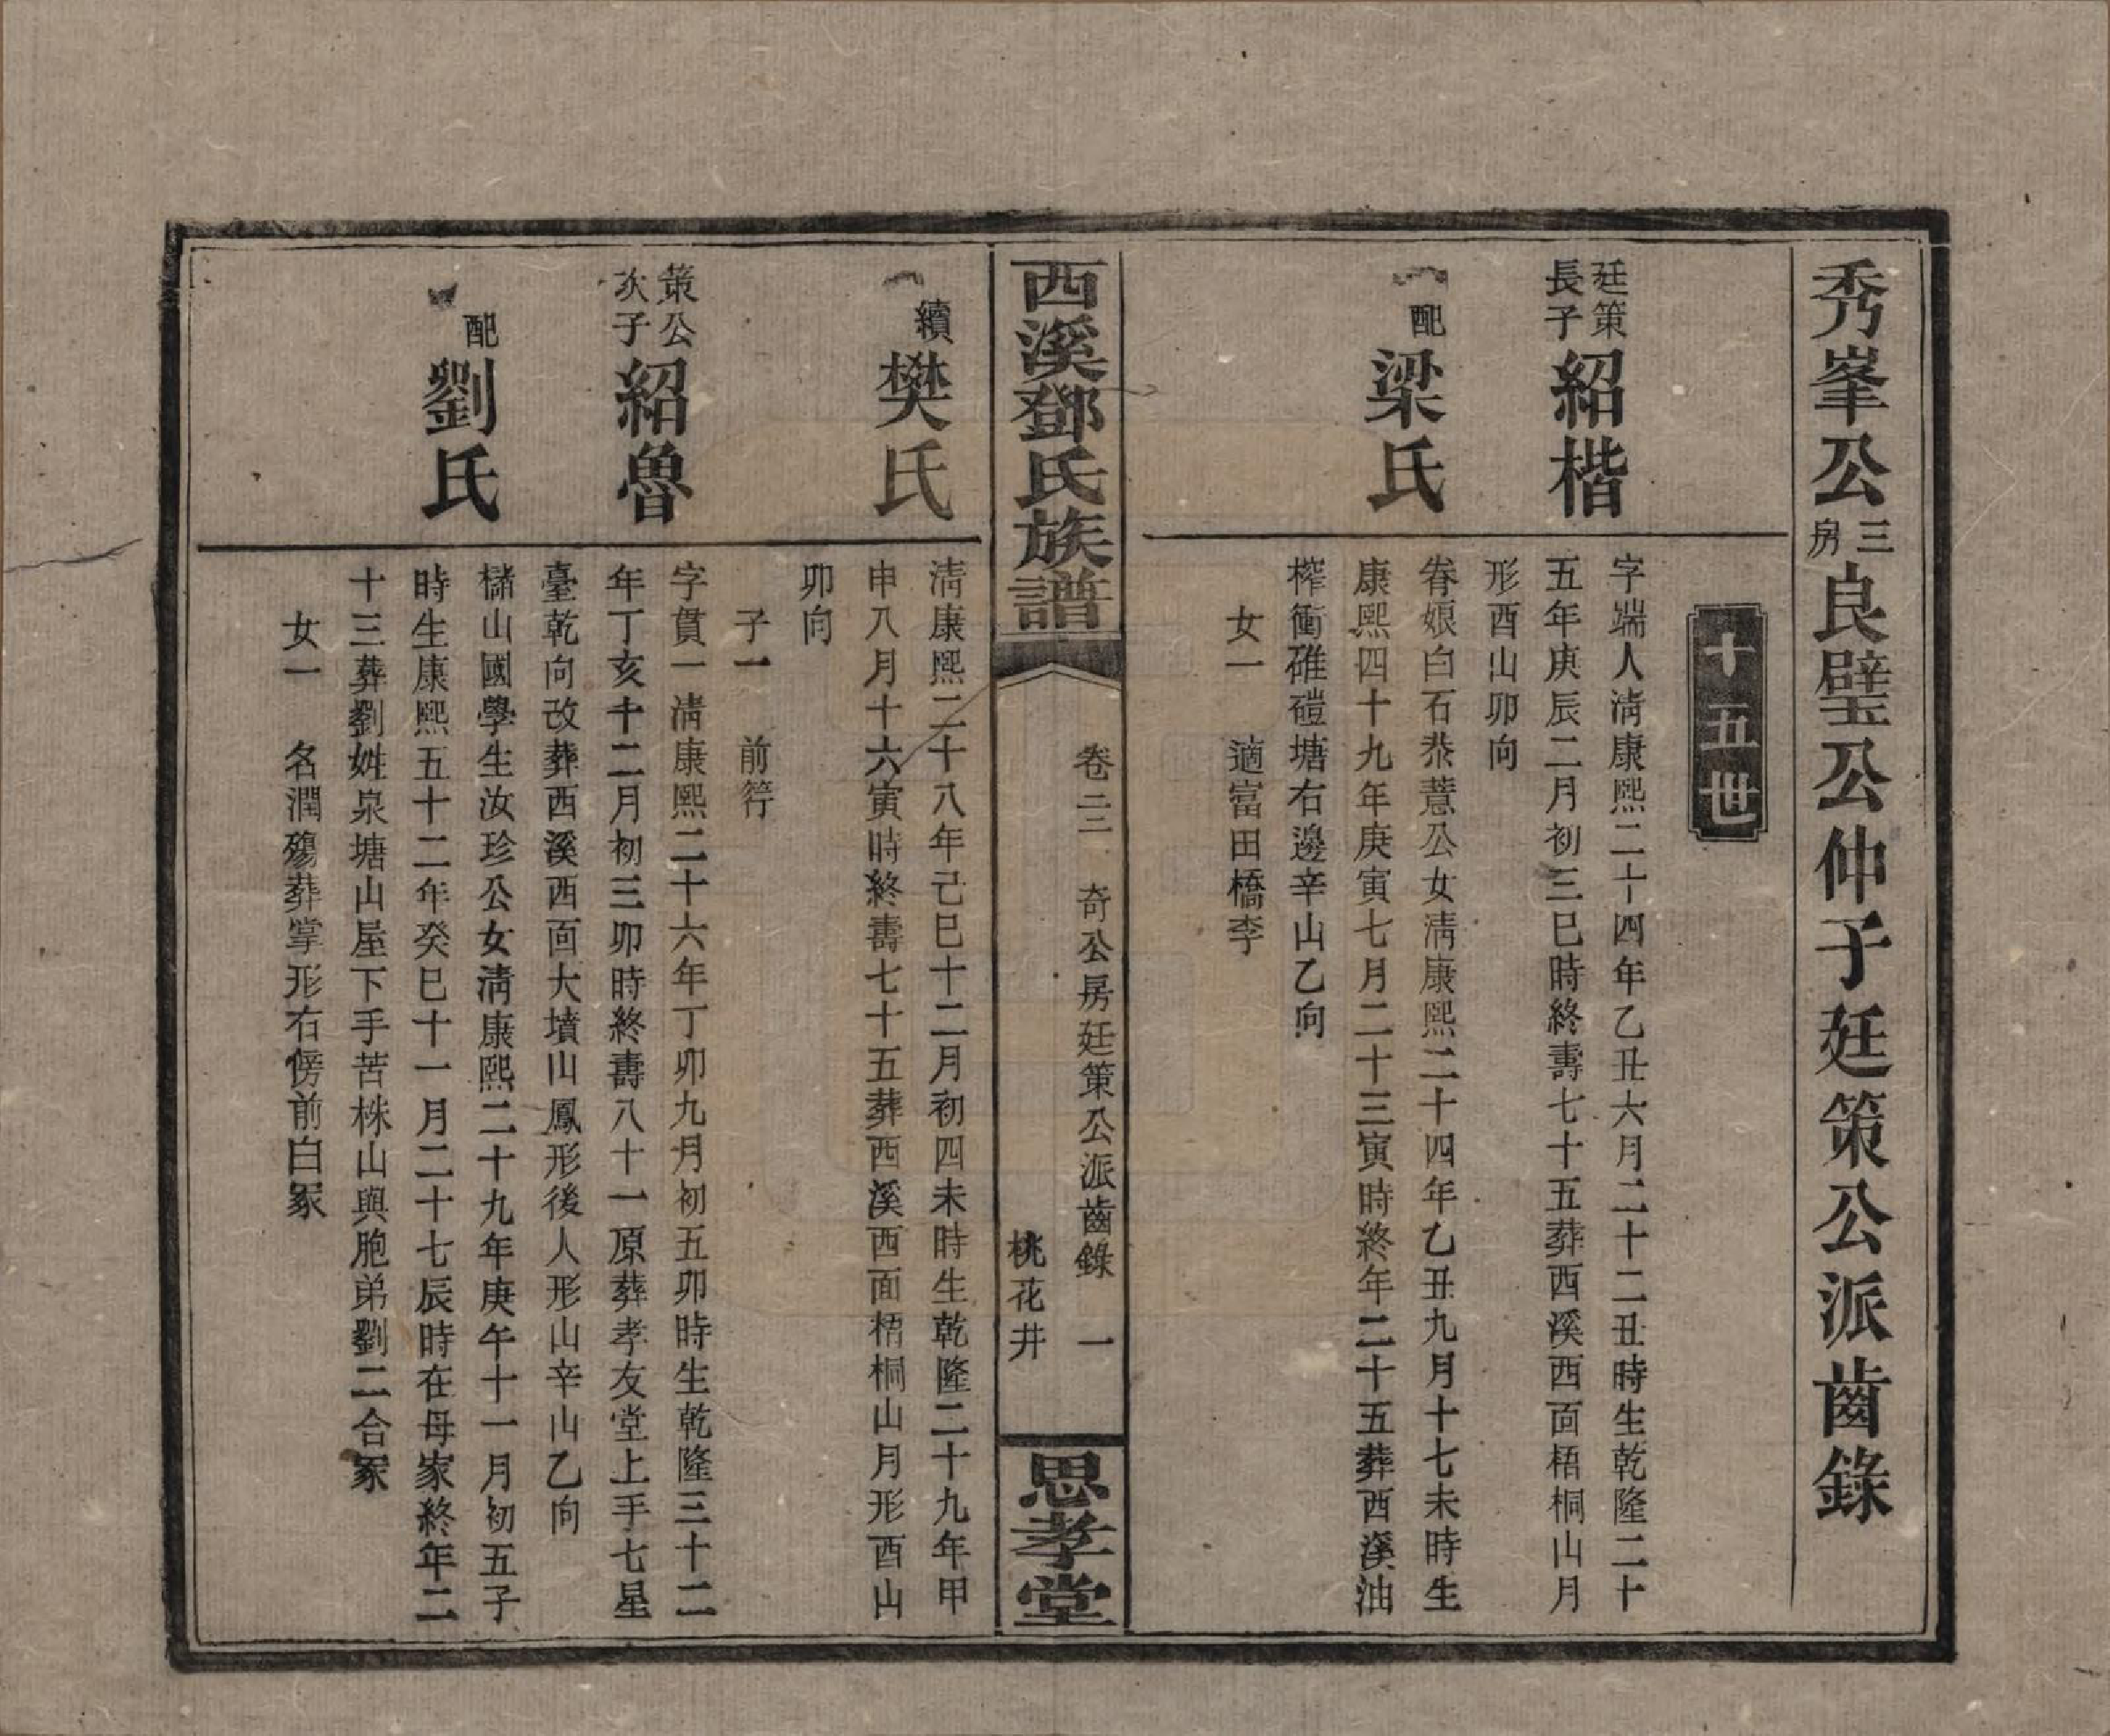 秀峯公三房良璧公仲子廷策公派齒錄
十五世
廷策長子紹楷
字端人淸康熙二十四年乙丑六月二十二丑時生乾隆二十
五年庚辰二月初三巳時終壽七十五葬西溪西面梧桐山月
形酉山卯向
配梁氏
眷娘白石烝薏公女淸康熙二十四年乙丑九月十七未時生
康熙四十九年庚寅七月二十三寅時終年二十五葬西溪油
榨衝碓磑塘右邊辛山乙向
女一　適富田橋李
西溪鄧氏族譜
卷二三　奇公房廷策公派齒錄　一
桃花井
思孝堂
續樊氏
淸康熙二十八年己巳十二月初四未時生乾隆二十九年甲
申八月十六寅時終壽七十五葬西溪西面梧桐山月形酉山
卯向
子一　前符
策公次子紹魯
字貫一淸康熙二十六年丁卯九月初五卯時生乾隆三十二
年丁亥十二月初三卯時終壽八十一原葬孝友堂上手七星
臺乾向改葬西溪西面大墳山鳳形後人形山辛山乙向
配劉氏
櫧山國學生汝珍公女淸康熙二十九年庚午十一月初五子
時生康熙五十二年癸巳十一月二十七辰時在母家終年二
十三葬劉姓泉塘山屋下手苦株山與胞弟劉二合冢
女一　名潤殤葬掌形右傍前白冢